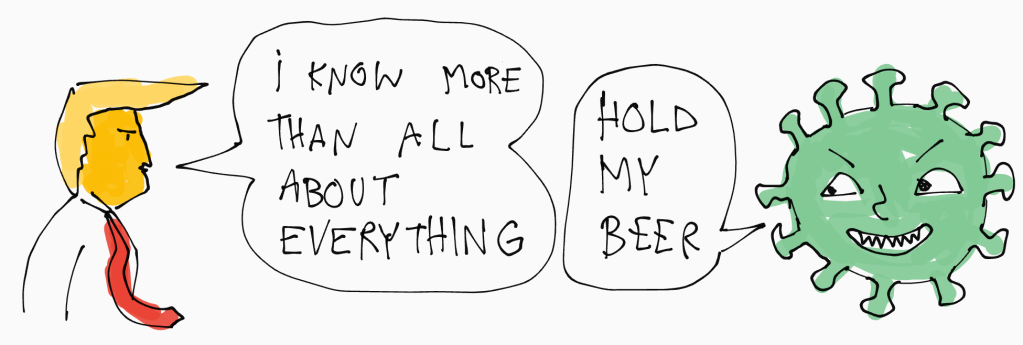 I KNOW MORE
THAN ALL
ABOUT
EVERYTHING
HOLD
MY
BEER